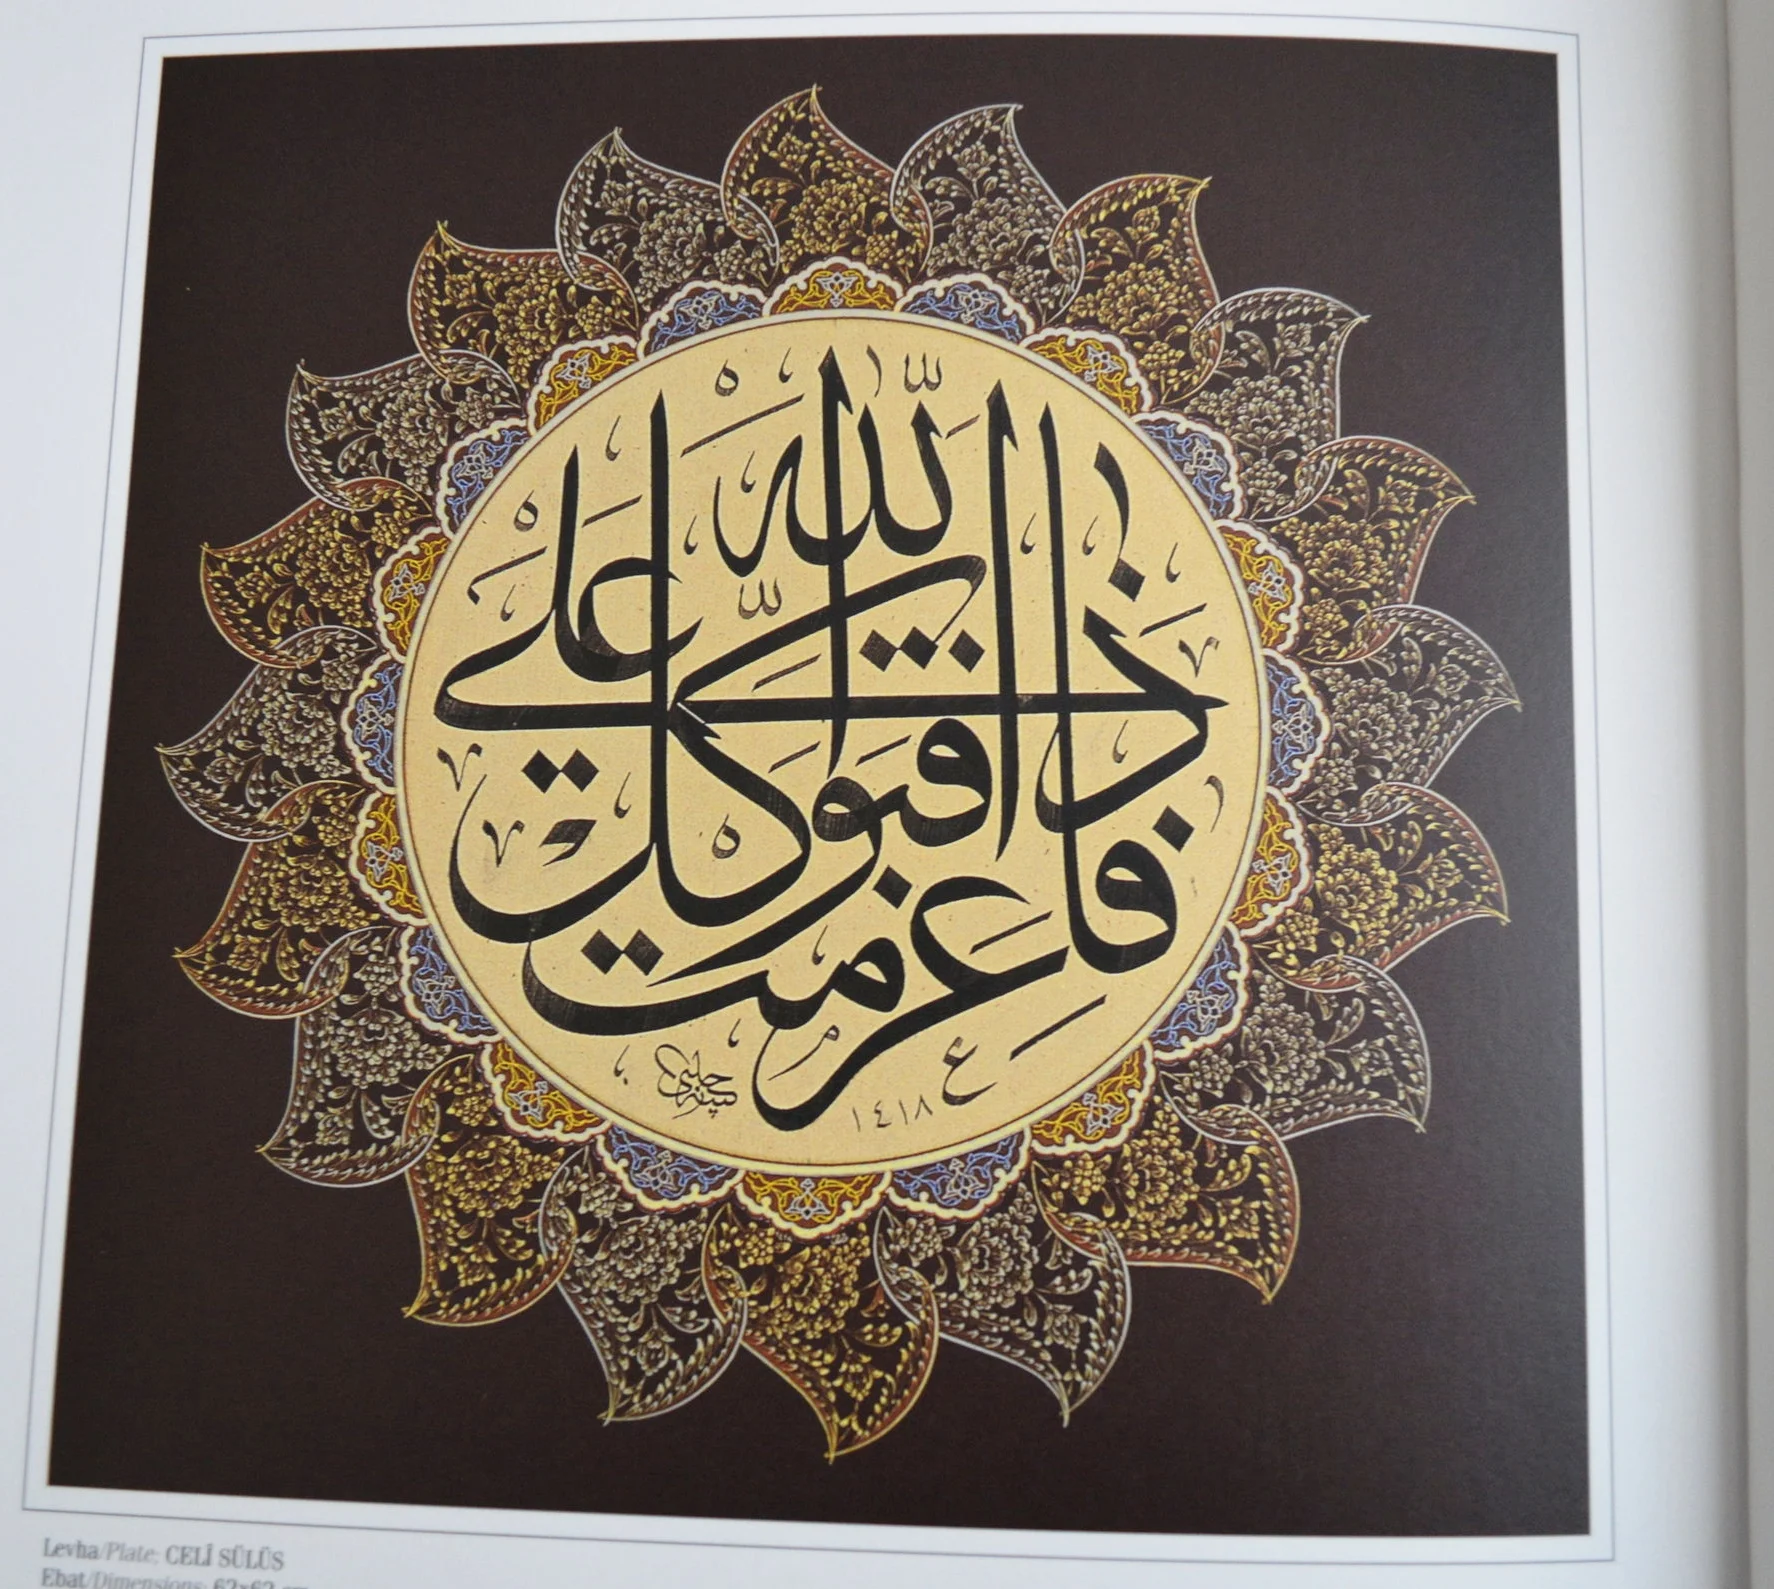 فاذا عزمت فتوكل على الله
١٤١٨
Levha/Plate: CELÎ SÜLÜS
Ebat/Dimensions: 62x62 cm